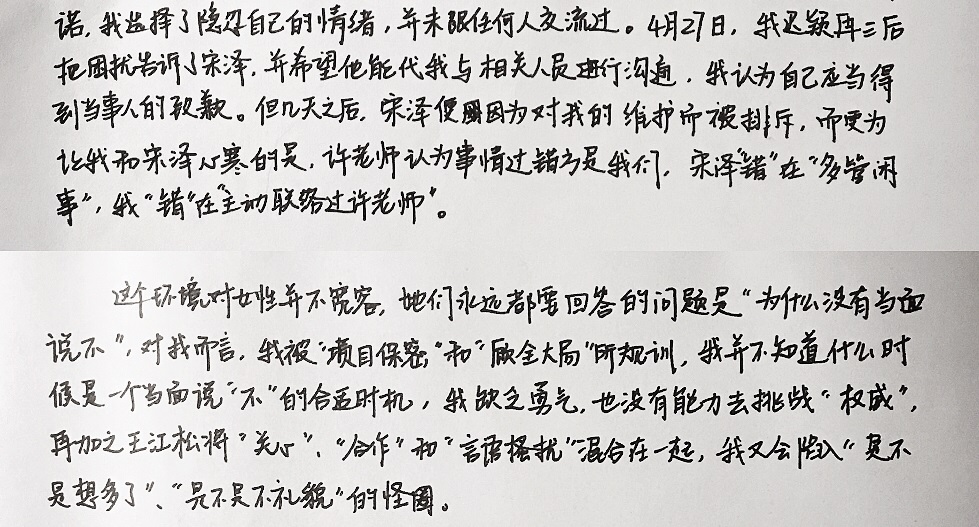 诺，我选择了隐忍自己的情绪，并未跟任何人交流过。4月27日，我迟疑再三后
把困扰告诉了宋泽，并希望他能代我与相关人员进行沟通，我认为自己应当得
到当事人的致歉。但几天之后，宋泽便因为对我的维护而被排斥，而更为
让我和宋泽心寒的是，许老师认为事情过错方是我们，宋泽"错"在"多管闲
事"，我"错"在"主动联络过许老师"。
这个环境对女性并不宽容，她们永远都要回答的问题是"为什么没有当面
说不"，对我而言，我被"项目保密"和"顾全大局"所规训，我并不知道什么时
候是一个当面说"不"的合适时机，我欲乏勇气，也没有能力去挑战"权威"，
再加之王江松将"关心"、"合作"和"言语骚扰"混合在一起，我又会陷入"是不
是想多了"、"是不是不礼貌"的怪圈。